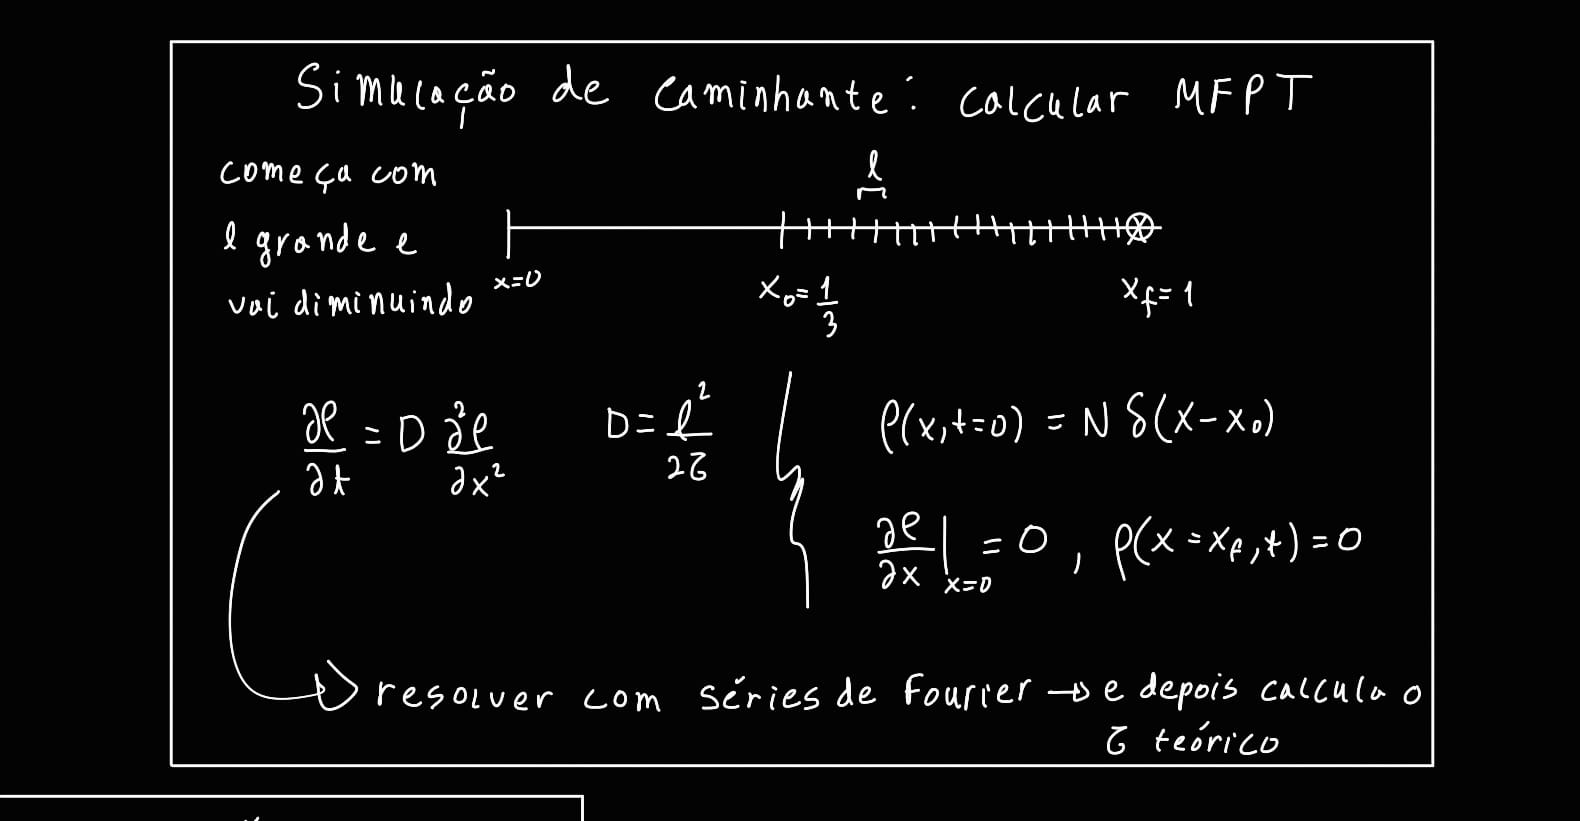 Simulação de caminhante: calcular MFPT
começa com
l grande e
vai diminuindo
l
x=0
x₀=1/3
x_f=1
∂ρ/∂t = D ∂²ρ/∂x²
D= l²/2τ
ρ(x,t=0) = N δ(x-x₀)
∂ρ/∂x|x=0 = 0 , ρ(x=x_f,t)=0
resolver com séries de Fourier → e depois calcula o
τ teórico